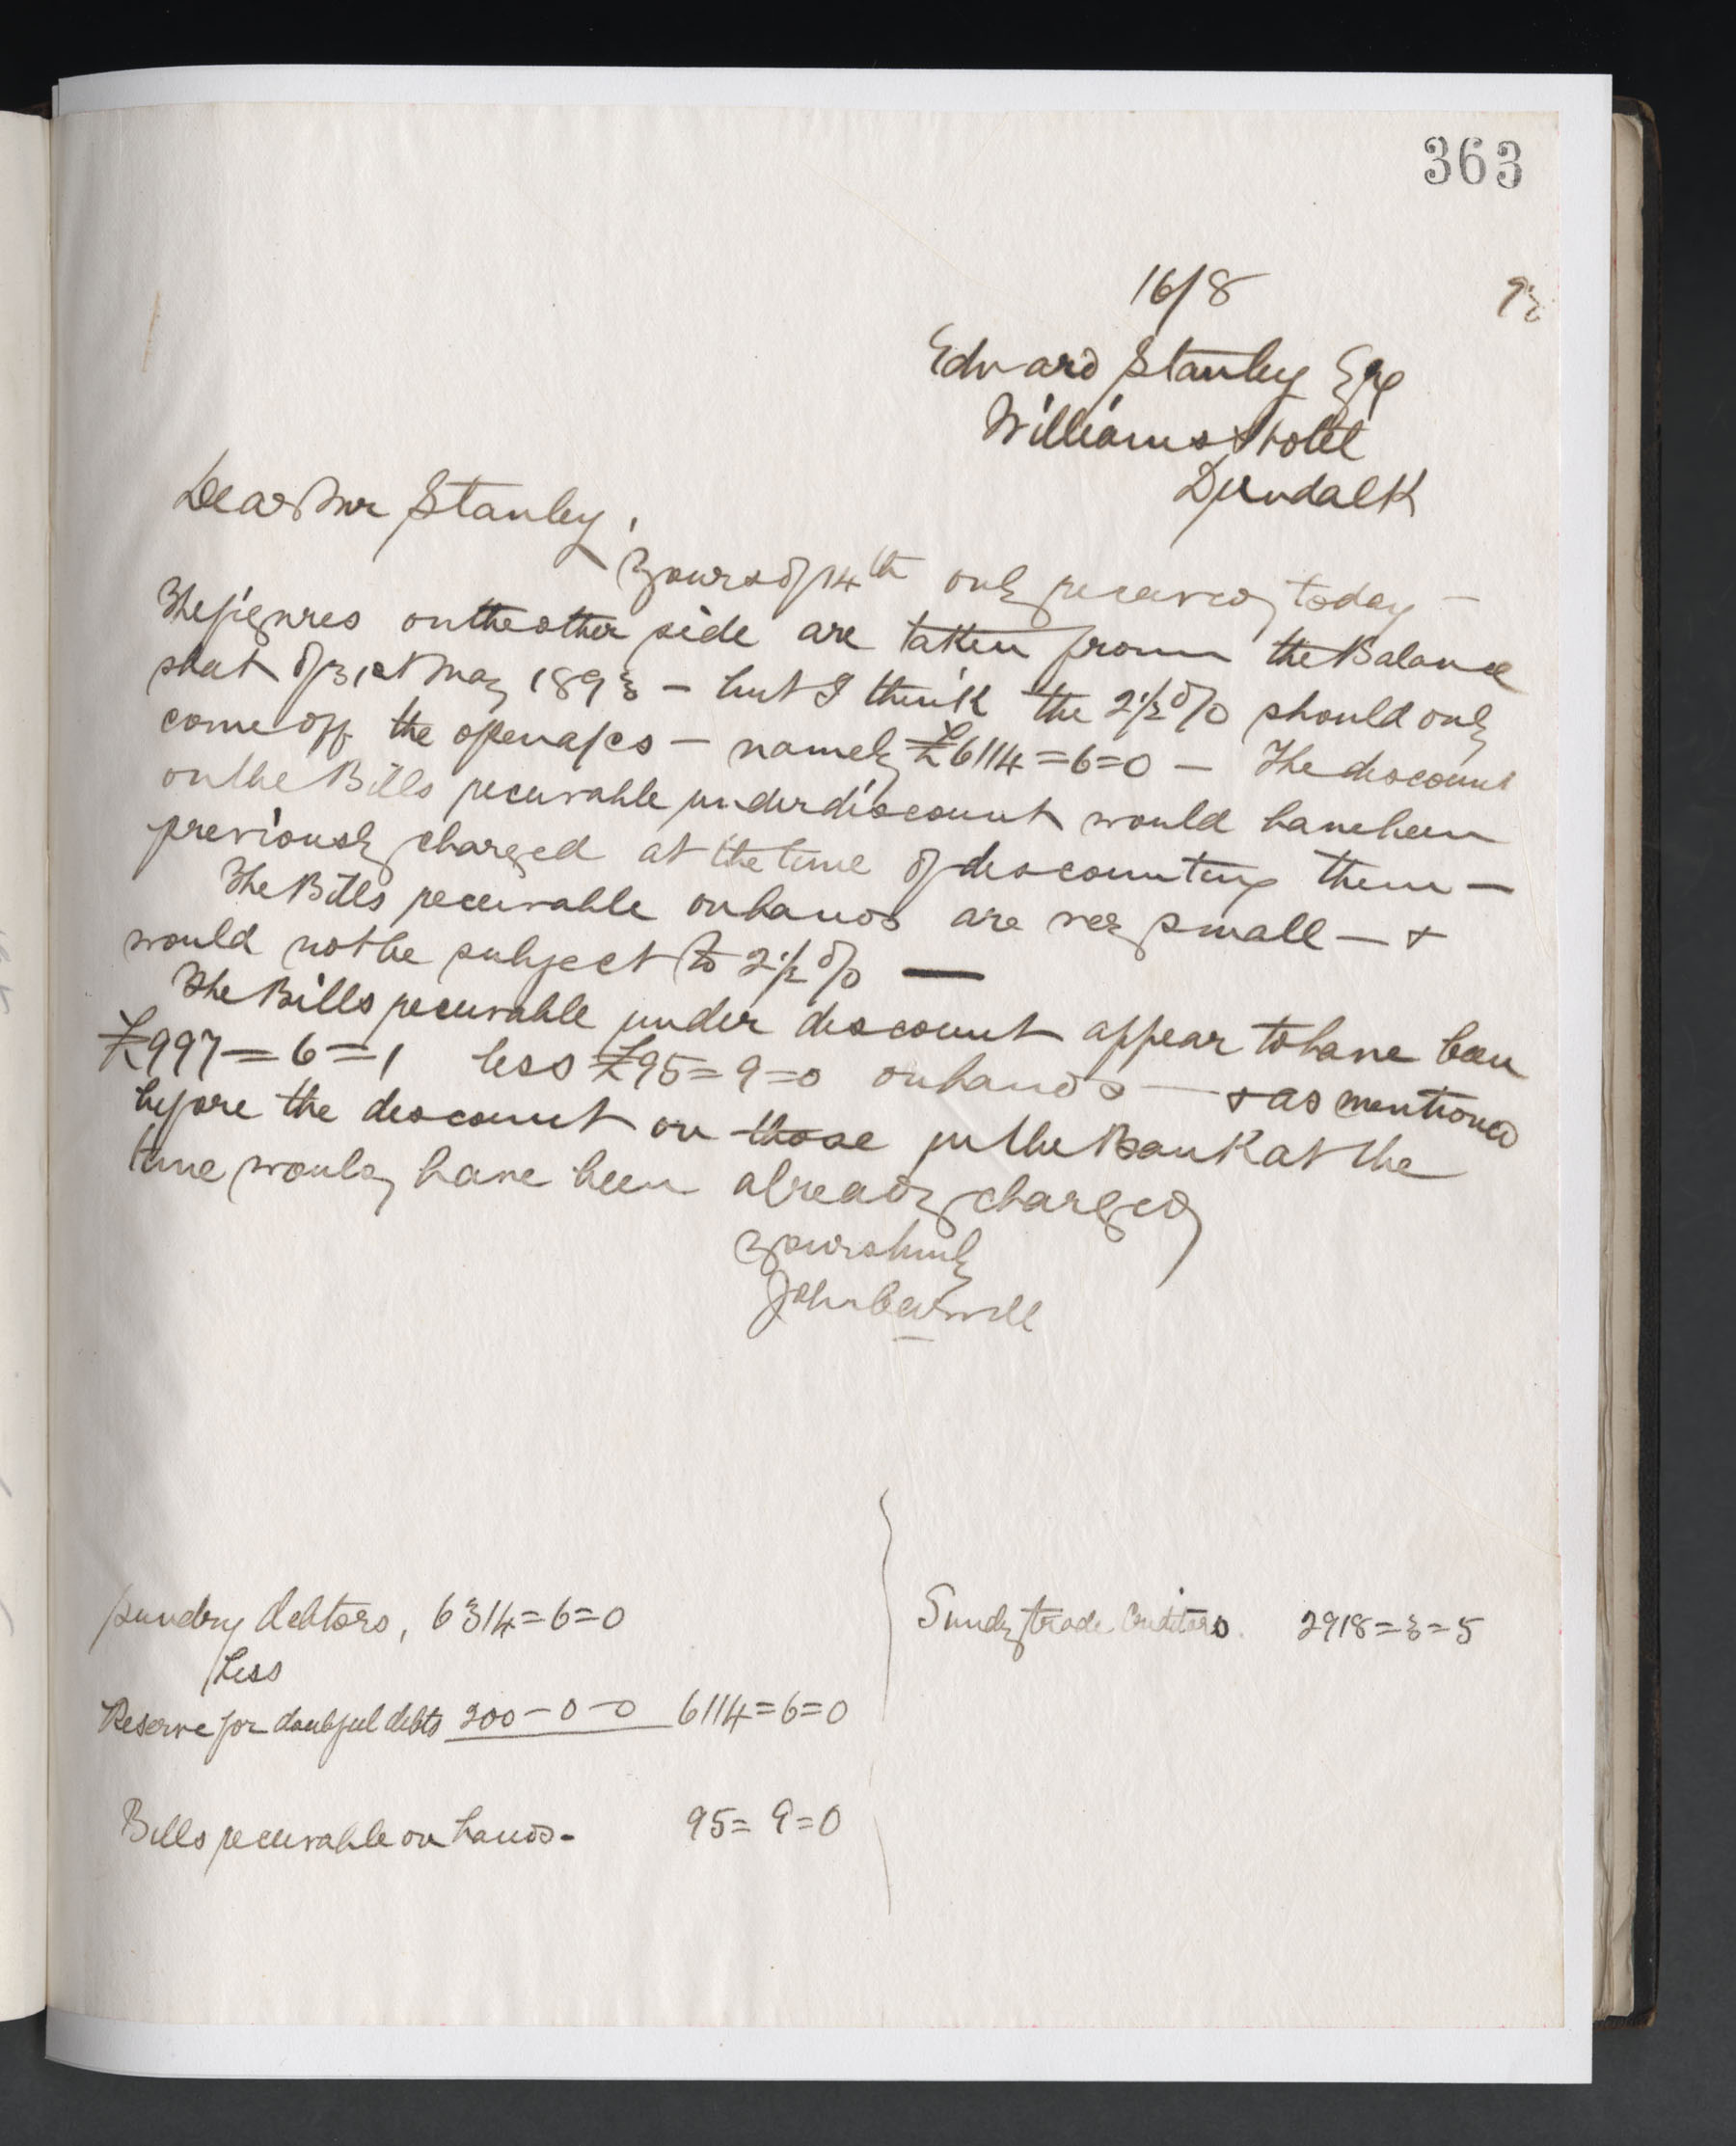 363
16/8 93
Edward Stanley Esq
Williams Hotel
Dundalk
Dear Mr Stanley,
Yours of 14th only received today —
The figures on the other side are taken from the Balance
sheet of 31st May 1893 — but I think the 2½% should only
come off the open a/cs — namely £6114=6=0 — The discount
on the Bills receivable under discount would have been
previously charged at the time of discounting them —
The Bills receivable on hands are very small — +
would not be subject to 2½% —
The Bills receivable under discount appear to have been
£997=6=1 less £95=9=0 on hands — + as mentioned
before the discount on those in the Bank at the
time would have been already charged
Yours truly
John
Sundry debtors, 6314=6=0
Less
Reserve for doubtful debts 200-0-0 6114=6=0
Bills receivable on hands - 95=9=0
Sundry trade Creditors. 2918=3=5